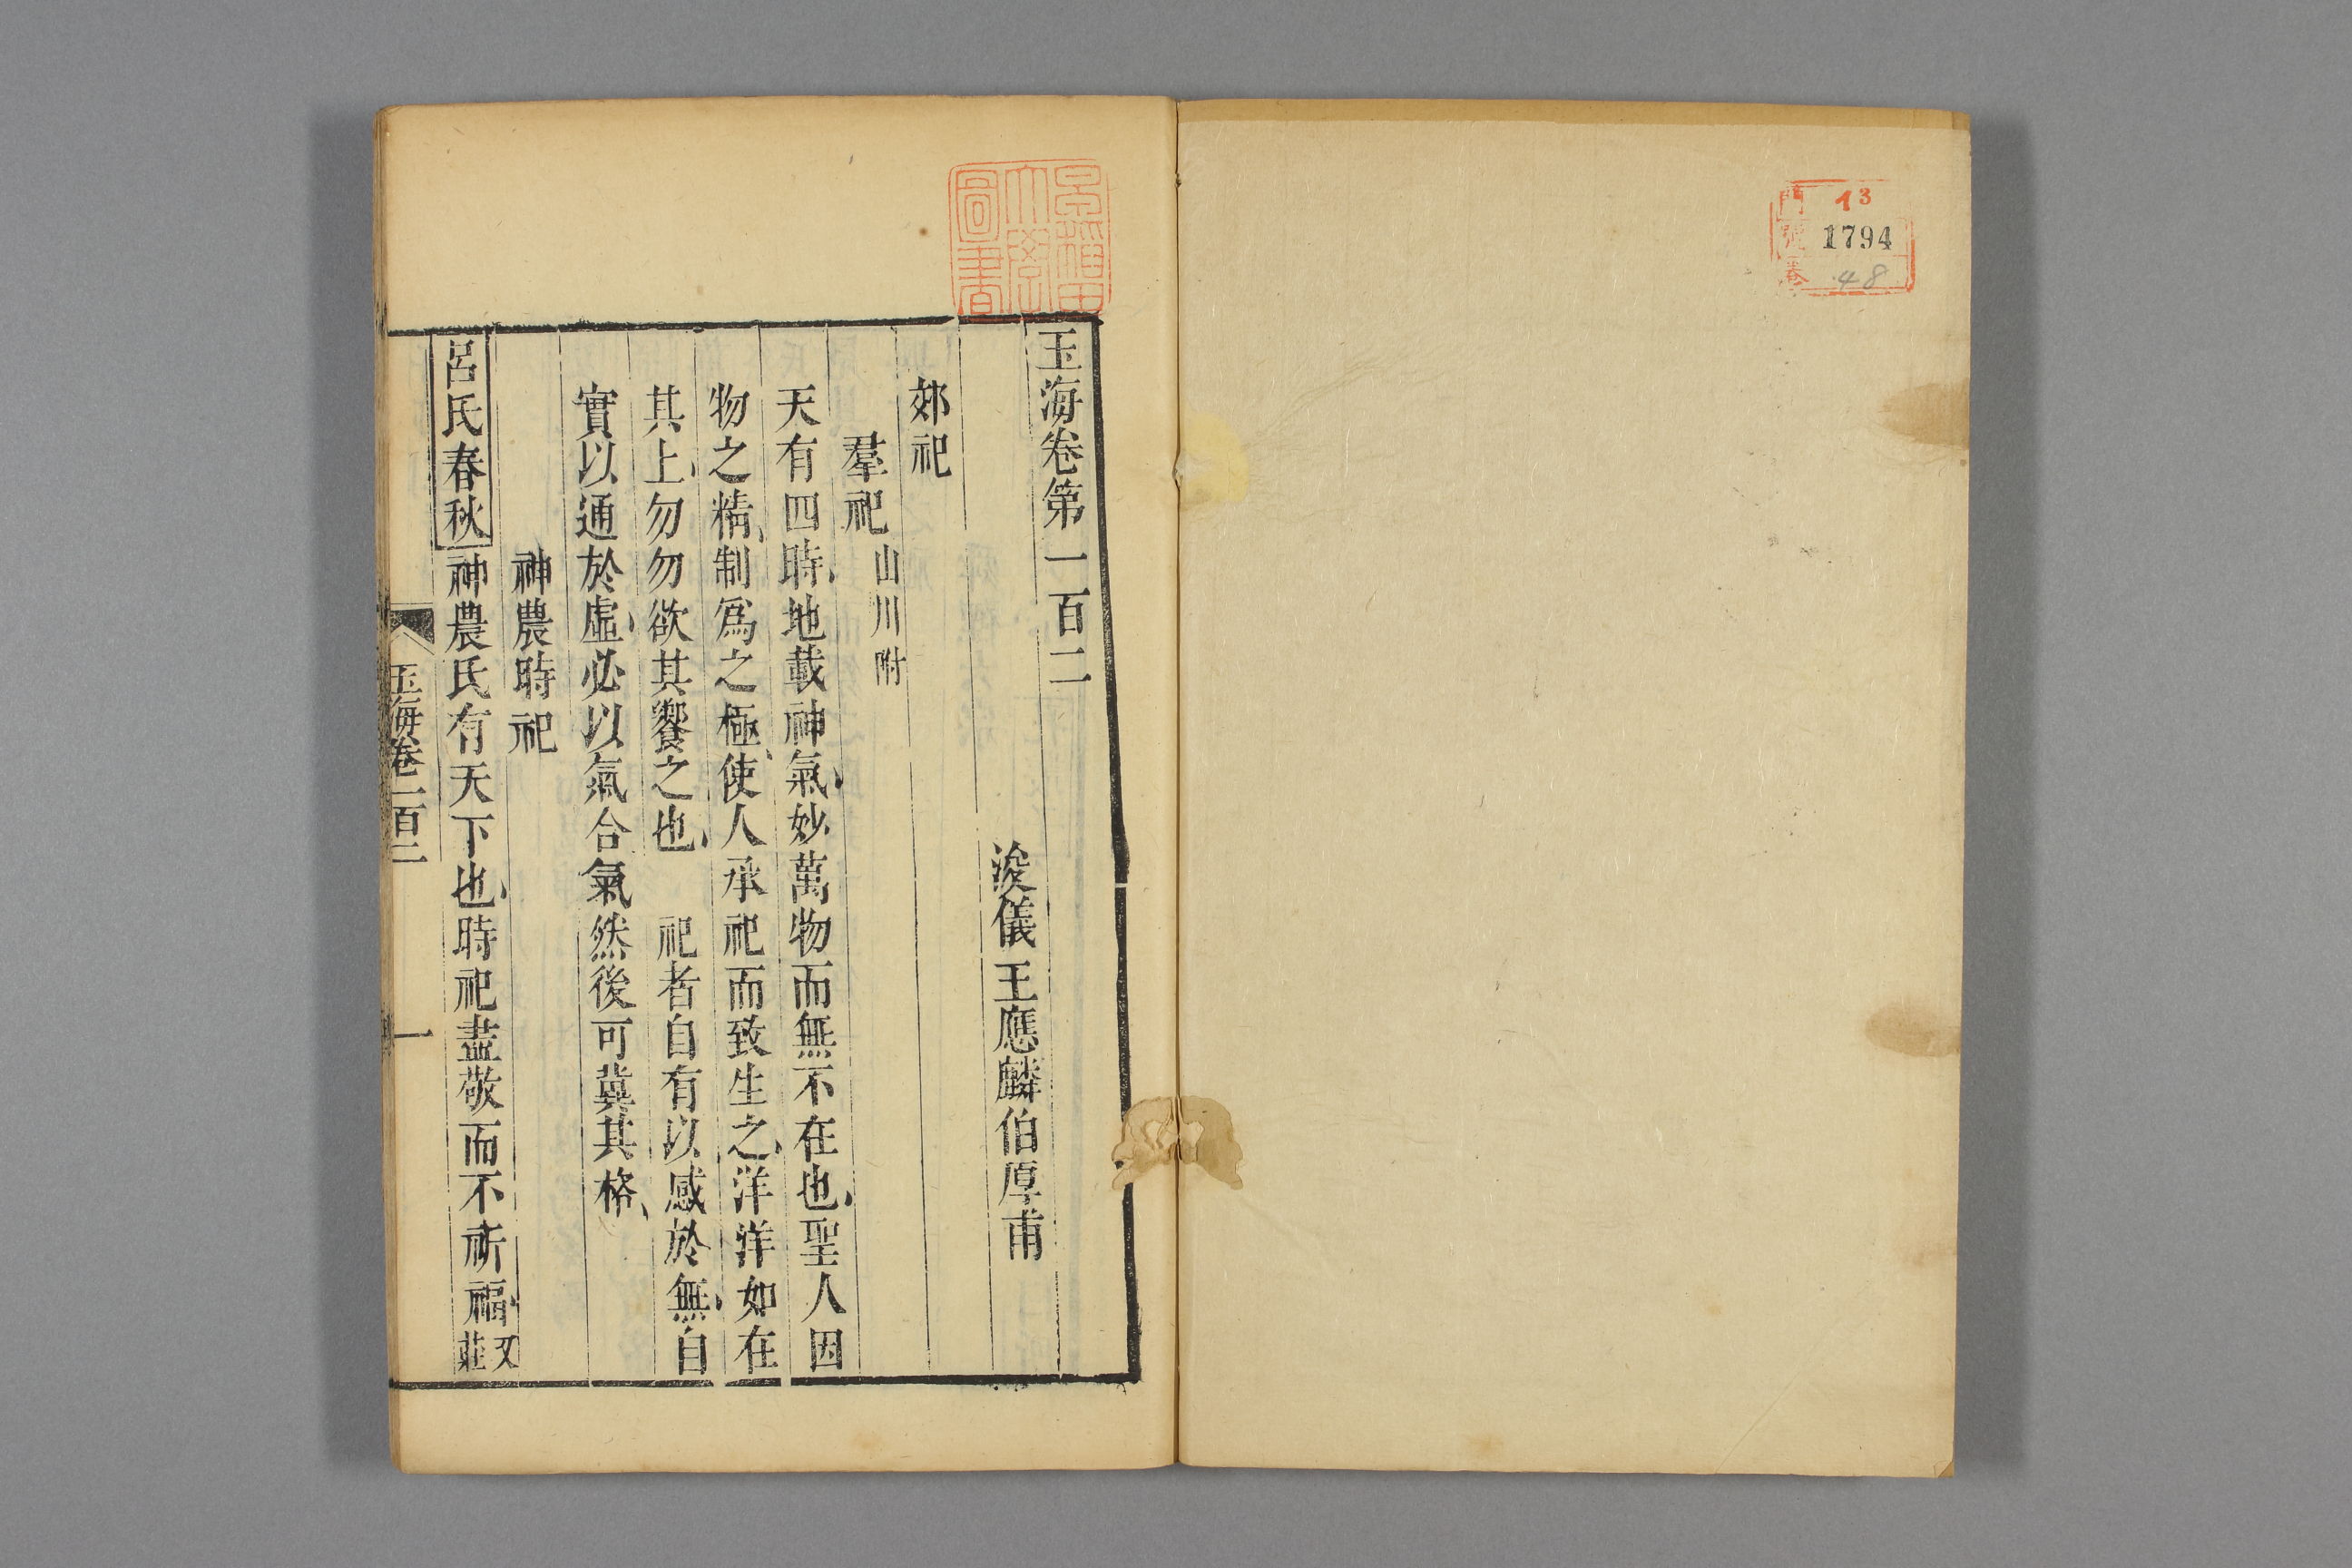 門 13
號 1794
卷 48
早稲田大學圖書
玉海卷第一百二
浚儀王應麟伯厚甫
郊祀
羣祀 山川附
天有四時、地載神氣、妙萬物而無不在也、聖人因
物之精、制爲之極、使人承祀而致生之、洋洋如在
其上、勿勿欲其饗之也、 祀者自有以感於無、自
實以通於虛、必以氣合氣然後可冀其格、
神農時祀
呂氏春秋神農氏有天下也、時祀盡敬而不祈福、又莊
玉海卷一百二 一